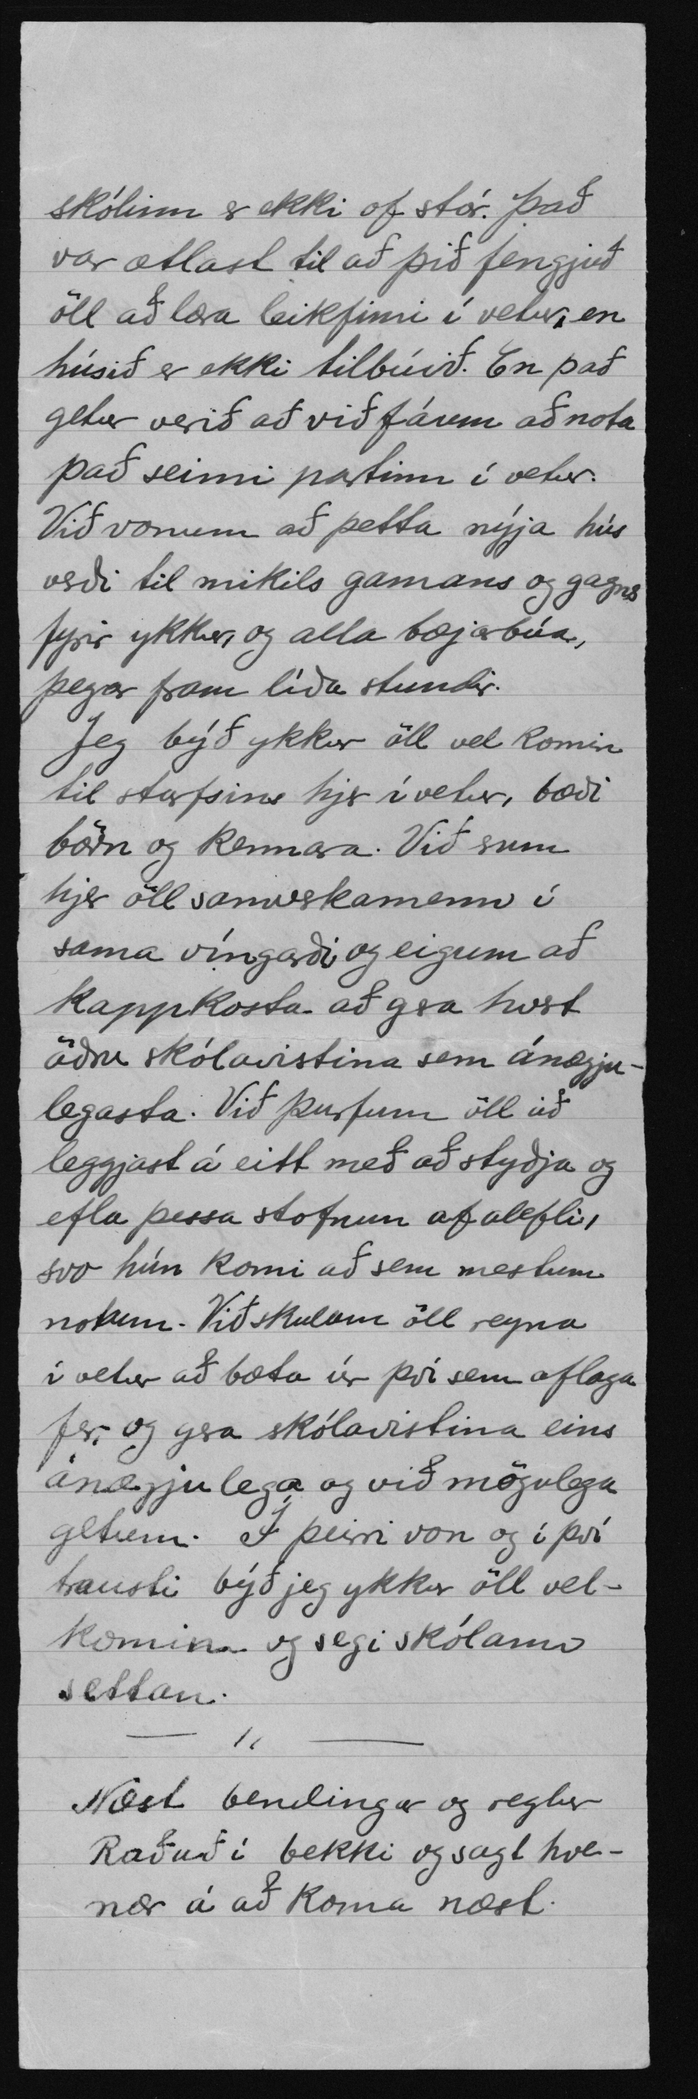 skólinn er ekki of stór. Það
var ætlast til að þið fengjuð
öll að læra leikfimi í vetur, en
húsið er ekki tilbúið. En það
getur verið að við fáum að nota
það seinni partinn í vetur.
Við vonum að þetta nýja hús
verði til mikils gamans og gagns
fyrir ykkur, og alla bæjarbúa,
þegar fram líða stundir.
Jeg býð ykkur öll vel komin
til starfsins hjer í vetur, bæði
börn og kennara. Við erum
hjer öll samverkamenn í
sama víngarði og eigum að
kappkosta að gera hvert
öðru skólavistina sem ánægju-
legasta. Við þurfum öll að
leggjast á eitt með að styðja og
efla þessa stofnun af alefli,
svo hún komi að sem mestum
notum. Við skulum öll reyna
í vetur að bæta úr því sem aflaga
fer, og gera skólavistina eins
ánægjulega og við mögulega
getum. Í þeirri von og í því
trausti býð jeg ykkur öll vel-
komin og segi skólann
settan.
— " —
Næst bendingar og reglur
Raðað í bekki og sagt hve-
nær á að koma næst.